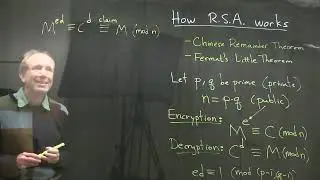 M^ed ≡ C^d claim ≡ M (mod n)
How R.S.A. works
- Chinese Remainder Theorem
- Fermat's Little Theorem
Let p, q be prime (private)
n = p·q (public)
Encryption: M^e ≡ C (mod n)
Decryption: C^d ≡ M (mod n)
ed ≡ 1 (mod (p-1)(q-1))